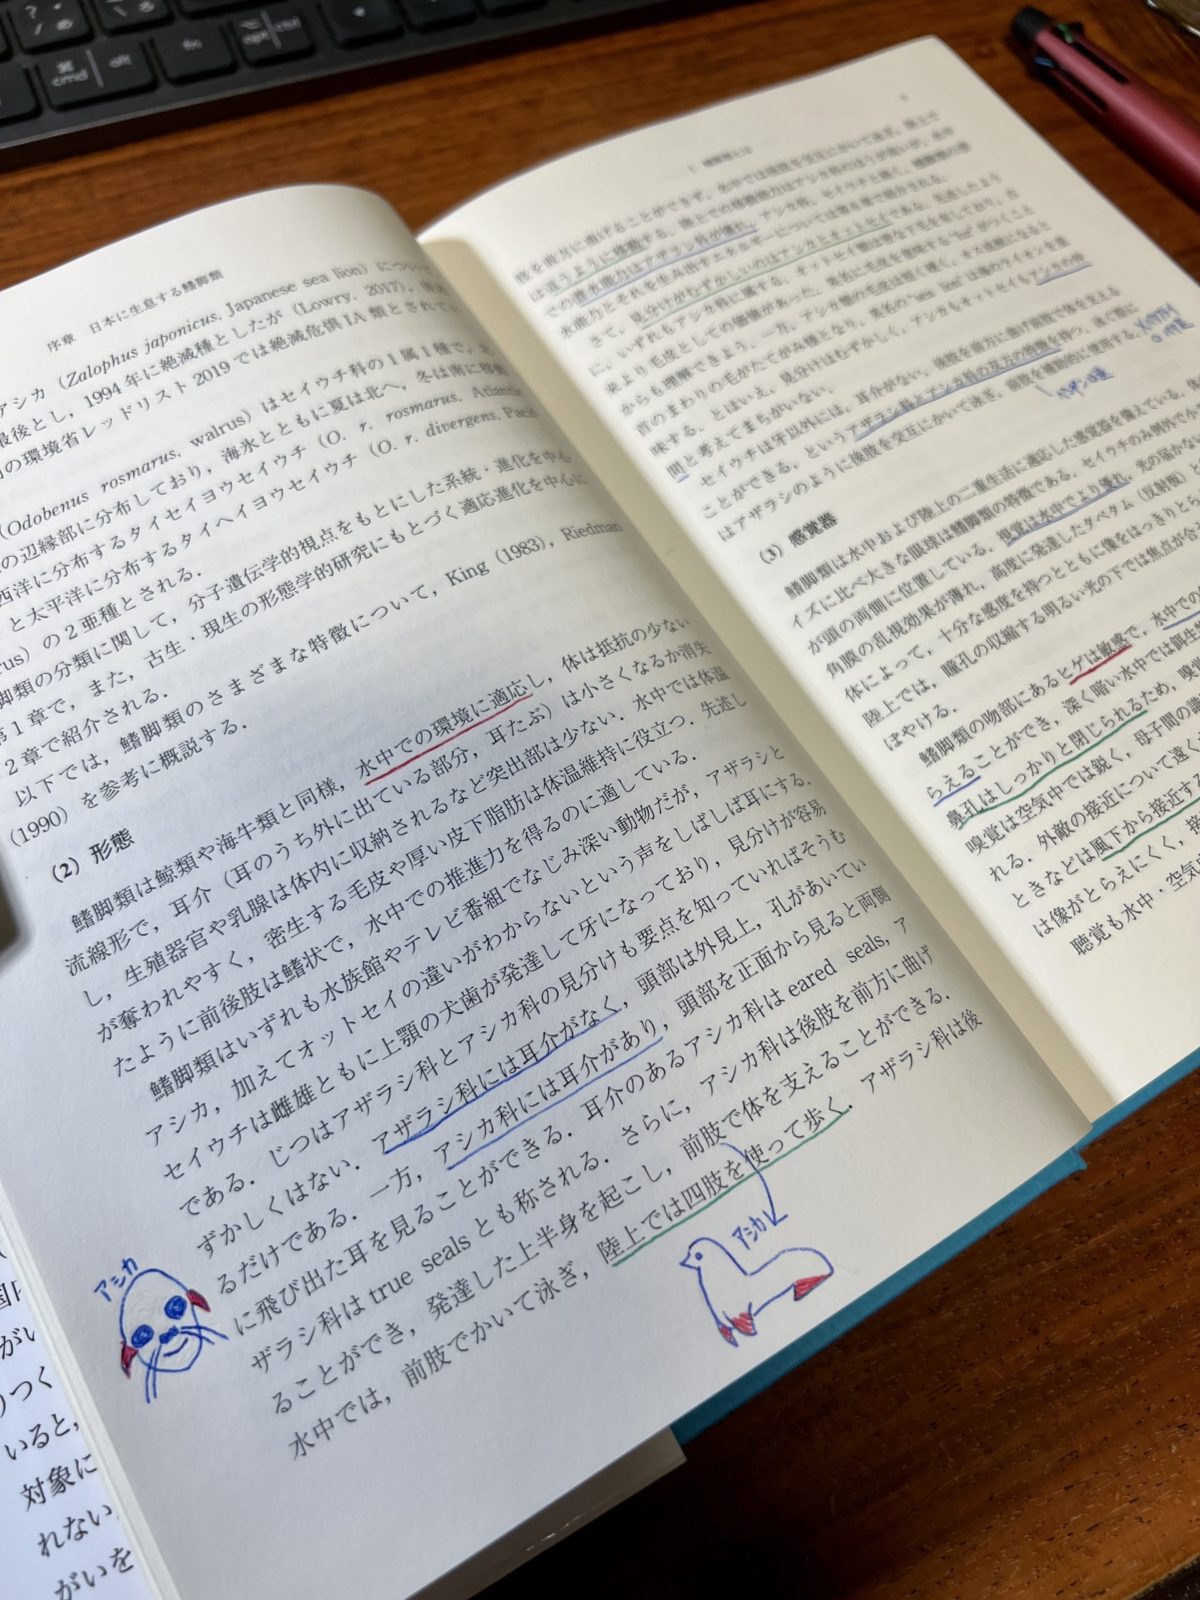 序章 日本に生息する鰭脚類
アシカ（Zalophus japonicus, Japanese sea lion）につい
最後とし，1994年に絶滅種としたが（Lowry, 2017），
の環境省レッドリスト2019では絶滅危惧IA類とされてい
（Odobenus rosmarus, walrus）はセイウチ科の1属1種で，
の辺縁部に分布しており，海氷とともに夏は北へ，冬は南に移動
西洋に分布するタイセイヨウセイウチ（O. r. rosmarus, Atlantic
と太平洋に分布するタイヘイヨウセイウチ（O. r. divergens, Paci
rus）の2亜種とされる．
脚類の分類に関して，分子遺伝学的視点をもとにした系統・進化を中心
第1章で，また，古生・現生の形態学的研究にもとづく適応進化を中心に
2章で紹介される．
以下では，鰭脚類のさまざまな特徴について，King（1983），Riedman
（1990）を参考に概説する．
（2） 形態
鰭脚類は鯨類や海牛類と同様，水中での環境に適応し，体は抵抗の少ない
流線形で，耳介（耳のうち外に出ている部分，耳たぶ）は小さくなるか消失
し，生殖器官や乳腺は体内に収納されるなど突出部は少ない．水中では体温
が奪われやすく，密生する毛皮や厚い皮下脂肪は体温維持に役立つ．先述し
たように前後肢は鰭状で，水中での推進力を得るのに適している．
鰭脚類はいずれも水族館やテレビ番組でなじみ深い動物だが，アザラシと
アシカ，加えてオットセイの違いがわからないという声をしばしば耳にする．
セイウチは雌雄ともに上顎の犬歯が発達して牙になっており，見分けが容易
である．じつはアザラシ科とアシカ科の見分けも要点を知っていればそうむ
ずかしくはない．アザラシ科には耳介がなく，頭部は外見上，孔があいてい
るだけである．一方，アシカ科には耳介があり，頭部を正面から見ると両側
に飛び出た耳を見ることができる．耳介のあるアシカ科は eared seals，ア
ザラシ科は true seals とも称される．さらに，アシカ科は後肢を前方に曲げ
ることができ，発達した上半身を起こし，前肢で体を支えることができる．
水中では，前肢でかいて泳ぎ，陸上では四肢を使って歩く．アザラシ科は後
アシカ
アシカ
国
がい
りつく
いると，
対象に
れない
がいを
肢を前方に曲げることができず，水中では後肢を交互にかいて泳ぎ，陸上で
は這うように移動する．陸上での移動能力はアシカ科のほうが高いが，水中
での潜水能力はアザラシ科が優れ，アシカ科，セイウチと続く．鰭脚類の潜
水能力とそれを生み出すエネルギーについては第6章で紹介される．
さて，見分けがむずかしいのはアシカとオットセイである．先述したよう
に，いずれもアシカ科に属する．オットセイ類は密な下毛を有しており，古
来より毛皮としての価値があった．英名に毛皮を意味する“fur”がつくこと
からも理解できよう．一方，アシカ類の毛皮は粗く硬く，オス成獣になると
首のまわりの毛がたてがみ様となり，英名の“sea lion”は海のライオンを意
味する．とはいえ，見分けはむずかしく，アシカもオットセイもアシカの仲
間と考えてまちがいない．
セイウチは牙以外には，耳介がない，後肢を前方に曲げ前肢で体を支える
ことができる，というアザラシ科とアシカ科の双方の特徴を持つ．泳ぐ際に
はアザラシのように後肢を交互にかいて泳ぎ，前肢を補助的に使用する．
（3） 感覚器
鰭脚類は水中および陸上の二重生活に適応した感覚器を備えている．
イズに比べ大きな眼球は鰭脚類の特徴である．セイウチのみ例外で小
が頭の両側に位置している．視覚は水中でより優れ，光の届かな
角膜の乱視効果が薄れ，高度に発達したタペタム（反射板）と
体によって，十分な感度を持つとともに像をはっきりとら
陸上では，瞳孔の収縮する明るい光の下では焦点が合
ぼやける．
鰭脚類の吻部にあるヒゲは敏感で，水中での
らえることができ，深く暗い水中では餌生
鼻孔はしっかりと閉じられるため，嗅
嗅覚は空気中では鋭く，母子間の識
れる．外敵の接近について遠く
ときなどは風下から接近す
は像がとらえにくく，接
聴覚も水中・空気